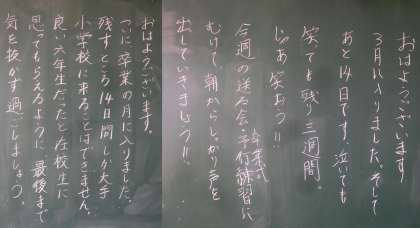 おはようございます
3月に入りました。そして
あと14日です。泣いても
笑っても残り三週間。
じゃあ笑おう!!
今週の送る会・卒業式予行練習に
むけて、朝からしっかり声を
出していきましょう!!
おはようございます。
ついに卒業の月に入りました。
残すところ14日間しか大手
小学校に来ることはできません。
良い六年生だったと在校生に
思ってもらえるように、最後まで
気を抜かず過ごしましょう。